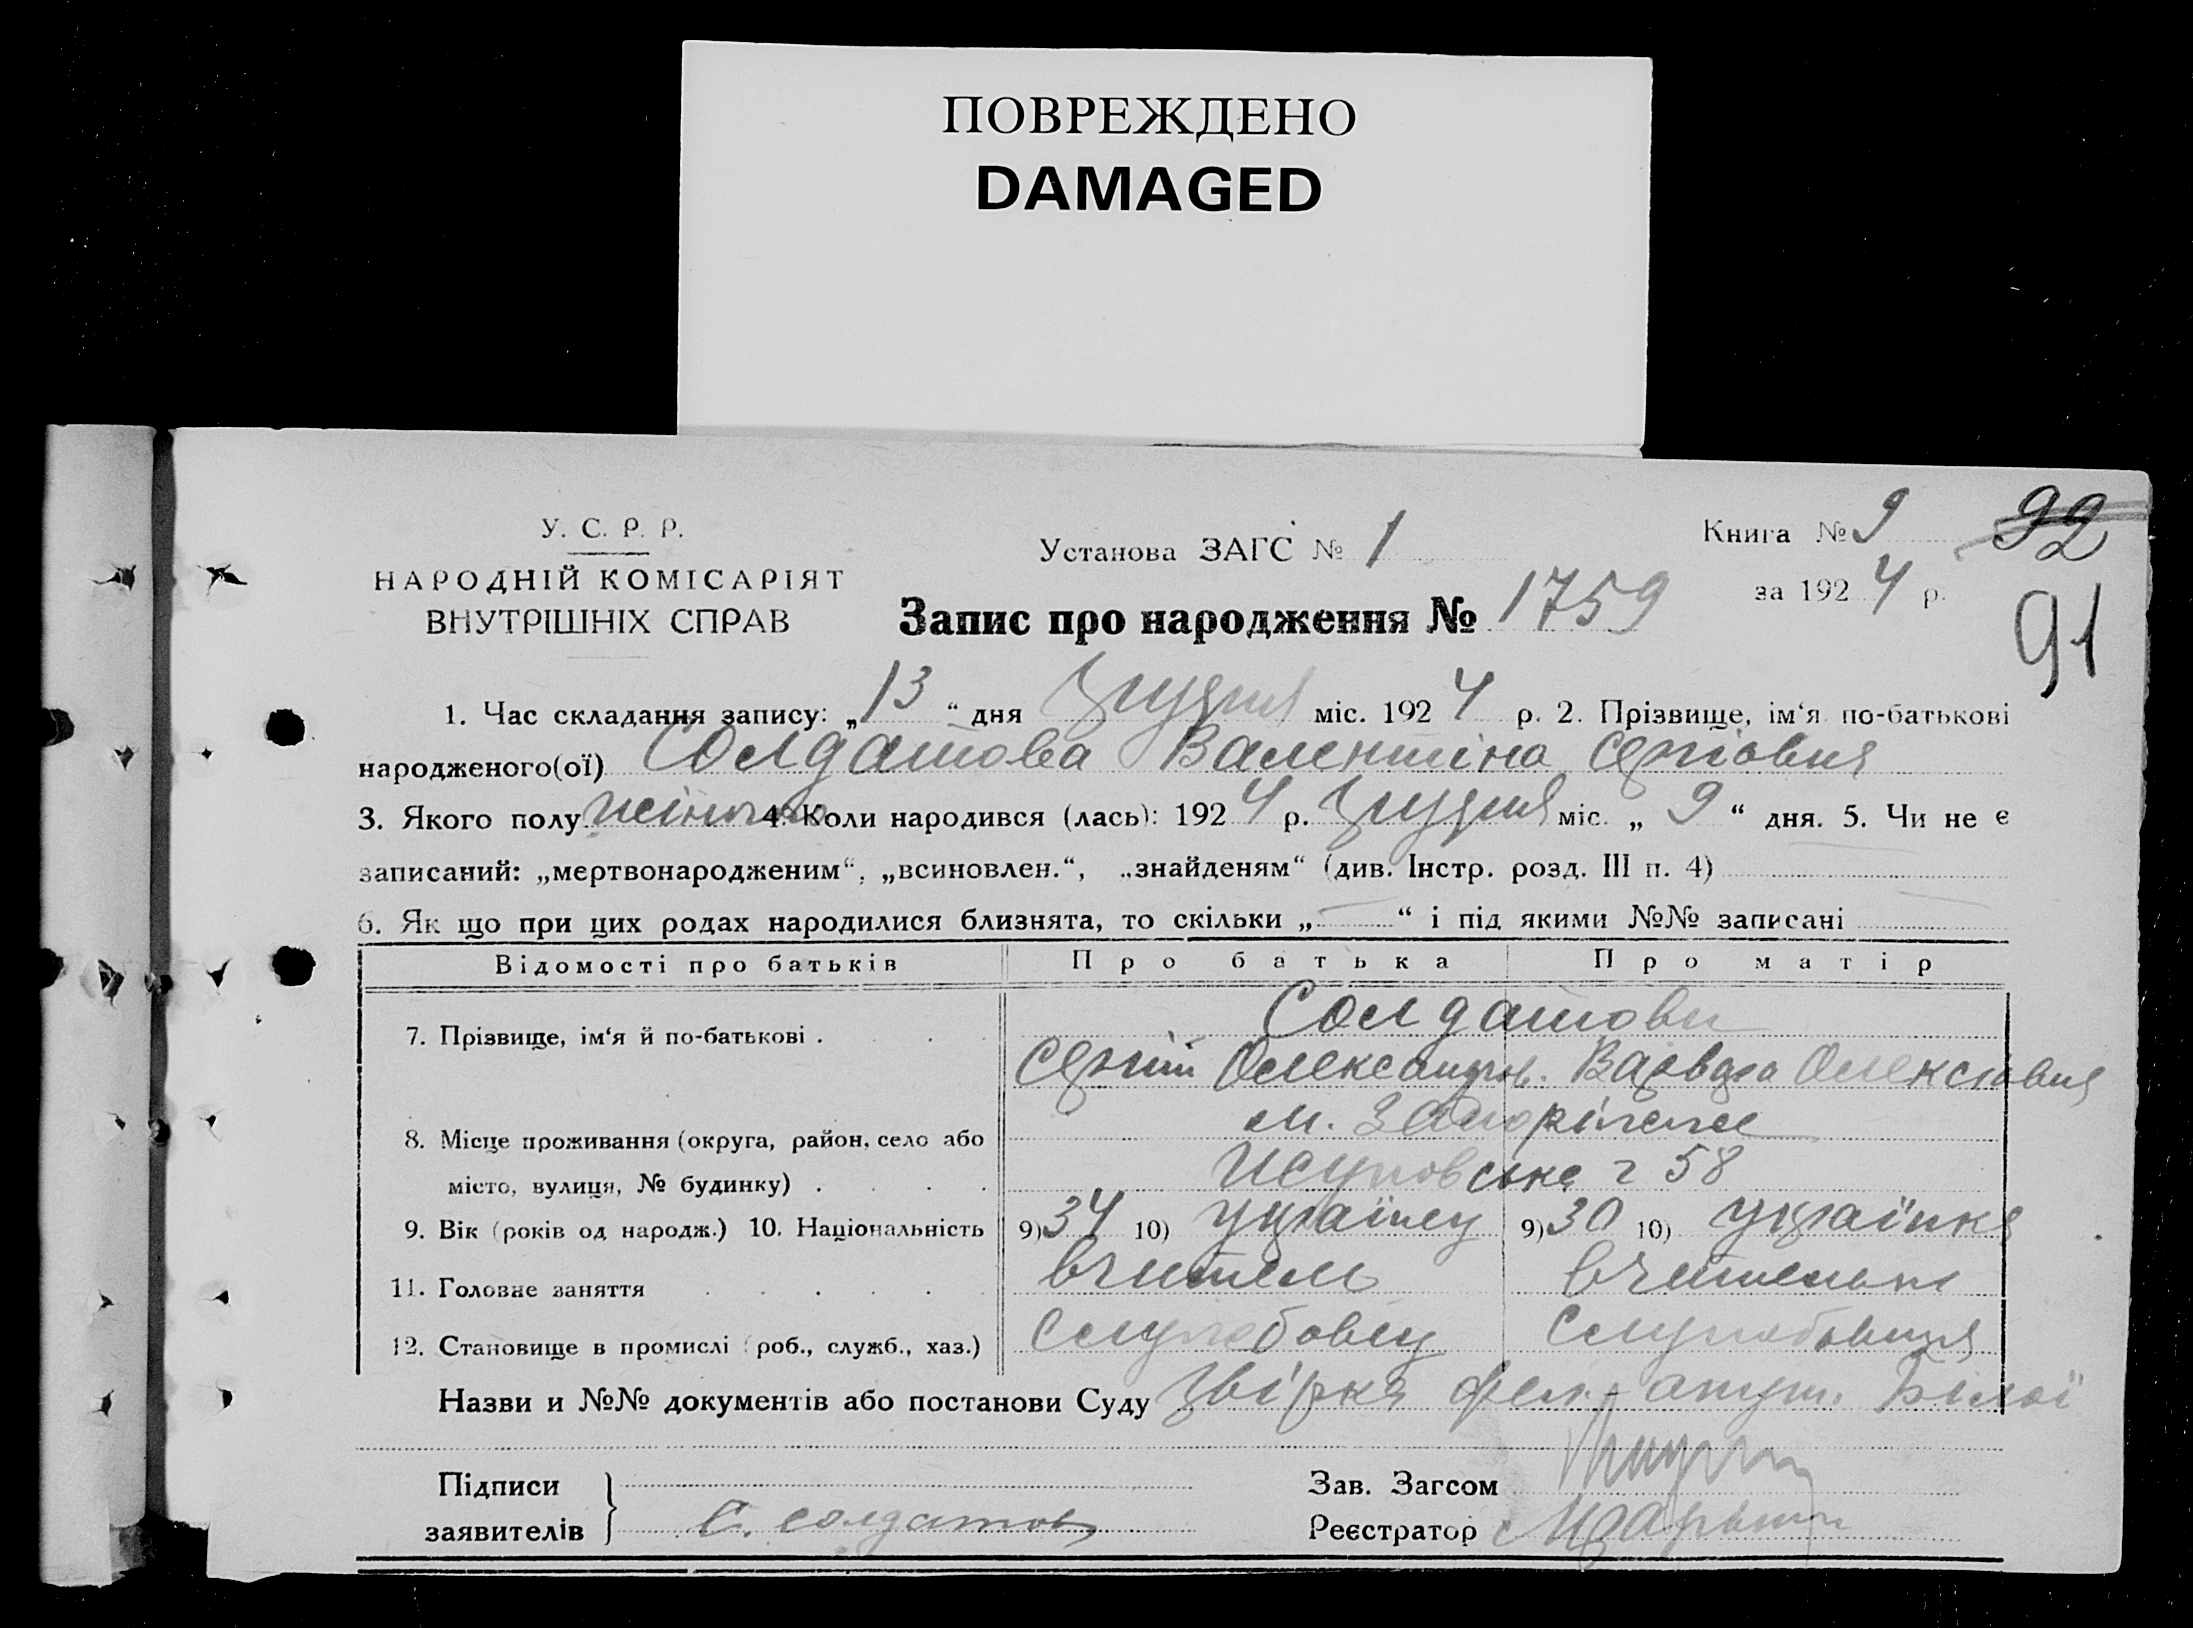 ПОВРЕЖДЕНО
DAMAGED
У. С. Р. Р.
НАРОДНІЙ КОМІСАРІЯТ
ВНУТРІШНІХ СПРАВ
Установа ЗАГС № 1
Книга № 9
за 1924 р.
92
91
Запис про народження № 1759
1. Час складання запису: „13“ дня грудня міс. 1924 р. 2. Прізвище, ім'я по-батькові
народженого(ої) Солдатова Валентіна Сергіовня
3. Якого полу жіночого 4. Коли народився (лась): 1924 р. грудня міс. „9“ дня. 5. Чи не є
записаний: „мертвонародженим“, „всиновлен.“, „знайденям“ (див. Інстр. розд. III п. 4)
6. Як що при цих родах народилися близнята, то скільки „—“ і під якими №№ записані
Відомості про батьків Про батька Про матір
7. Прізвище, ім'я й по-батькові . Солдатови
Сергій Олександров. Варвара Олексіовня
8. Місце проживання (округа, район, село або м. Запоріжже
місто, вулиця, № будинку) . 58
9. Вік (років од народж.) 10. Національність 9) 34 10) українец 9) 30 10) українка
11. Головне заняття вчитель вчителька
12. Становище в промислі (роб., служб., хаз.) Службовец Службовиця
Назви и №№ документів або постанови Суду Звірка акуш. Білої
Підписи
заявителів С. Солдатов
Зав. Загсом
Реєстратор